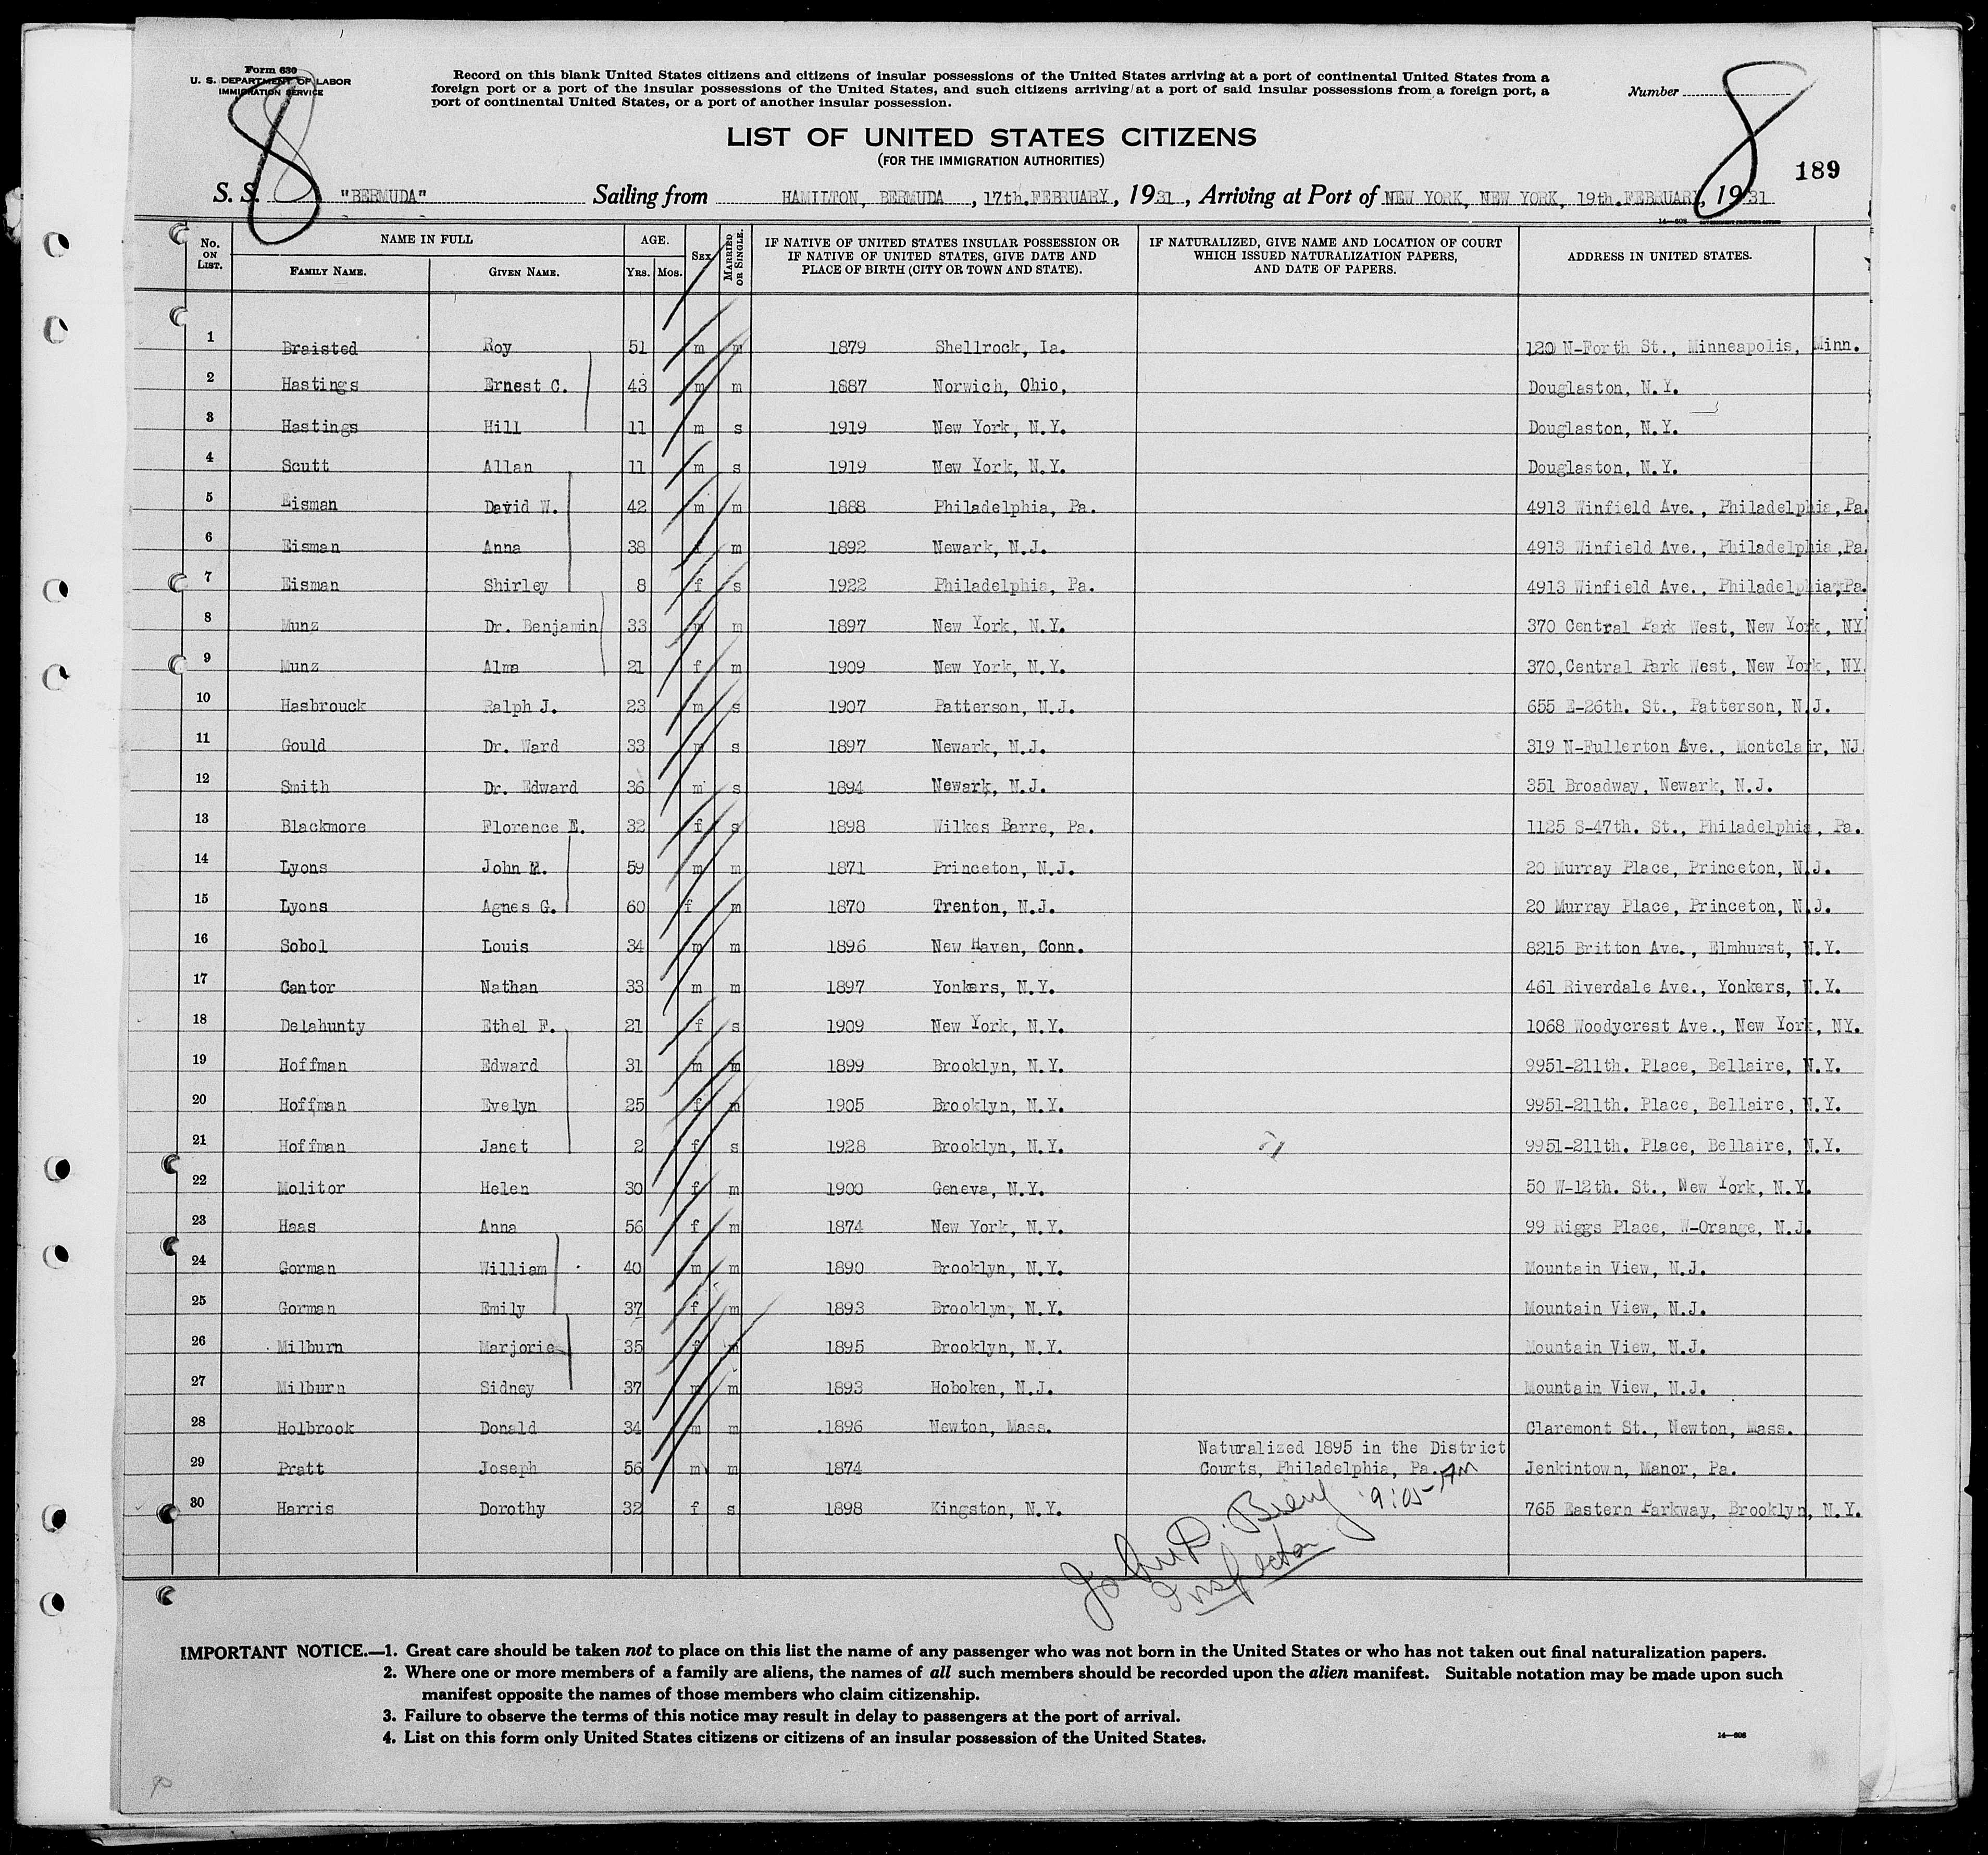 Form 630
U. S. DEPARTMENT OF LABOR
IMMIGRATION SERVICE
Record on this blank United States citizens and citizens of insular possessions of the United States arriving at a port of continental United States from a
foreign port or a port of the insular possessions of the United States, and such citizens arriving at a port of said insular possessions from a foreign port, a
port of continental United States, or a port of another insular possession.
Number
8
8
LIST OF UNITED STATES CITIZENS
(FOR THE IMMIGRATION AUTHORITIES)
189
S. S. "BERMUDA" Sailing from HAMILTON, BERMUDA, 17th.FEBRUARY, 1931, Arriving at Port of NEW YORK, NEW YORK, 19th.FEBRUARY, 1931
14—608 GOVERNMENT PRINTING OFFICE
No. ON LIST. NAME IN FULL AGE. SEX MARRIED OR SINGLE. IF NATIVE OF UNITED STATES INSULAR POSSESSION OR IF NATIVE OF UNITED STATES, GIVE DATE AND PLACE OF BIRTH (CITY OR TOWN AND STATE). IF NATURALIZED, GIVE NAME AND LOCATION OF COURT WHICH ISSUED NATURALIZATION PAPERS, AND DATE OF PAPERS. ADDRESS IN UNITED STATES.
FAMILY NAME. GIVEN NAME. YRS. MOS.
1 Braisted Roy 51 m m 1879 Shellrock, Ia. 120 N-Forth St., Minneapolis, Minn.
2 Hastings Ernest C. 43 m m 1887 Norwich, Ohio, Douglaston, N.Y.
3 Hastings Hill 11 m s 1919 New York, N.Y. Douglaston, N.Y.
4 Scutt Allan 11 m s 1919 New York, N.Y. Douglaston, N.Y.
5 Eisman David W. 42 m m 1888 Philadelphia, Pa. 4913 Winfield Ave., Philadelphia,Pa.
6 Eisman Anna 38 m 1892 Newark, N.J. 4913 Winfield Ave., Philadelphia,Pa.
7 Eisman Shirley 8 f s 1922 Philadelphia, Pa. 4913 Winfield Ave., Philadelphia,Pa.
8 Munz Dr. Benjamin 33 m m 1897 New York, N.Y. 370 Central Park West, New York, NY.
9 Munz Alma 21 f m 1909 New York, N.Y. 370,Central Park West, New York, NY.
10 Hasbrouck Ralph J. 23 m s 1907 Patterson, N.J. 655 E-26th. St., Patterson, N.J.
11 Gould Dr. Ward 33 m s 1897 Newark, N.J. 319 N-Fullerton Ave., Montclair, NJ.
12 Smith Dr. Edward 36 m s 1894 Newark, N.J. 351 Broadway, Newark, N.J.
13 Blackmore Florence E. 32 f s 1898 Wilkes Barre, Pa. 1125 S-47th. St., Philadelphia, Pa.
14 Lyons John H. 59 m m 1871 Princeton, N.J. 20 Murray Place, Princeton, N.J.
15 Lyons Agnes G. 60 f m 1870 Trenton, N.J. 20 Murray Place, Princeton, N.J.
16 Sobol Louis 34 m m 1896 New Haven, Conn. 8215 Britton Ave., Elmhurst, N.Y.
17 Cantor Nathan 33 m m 1897 Yonkers, N.Y. 461 Riverdale Ave., Yonkers, N.Y.
18 Delahunty Ethel F. 21 f s 1909 New York, N.Y. 1068 Woodycrest Ave., New York, NY.
19 Hoffman Edward 31 m m 1899 Brooklyn, N.Y. 9951-211th. Place, Bellaire, N.Y.
20 Hoffman Evelyn 25 f m 1905 Brooklyn, N.Y. 9951-211th. Place, Bellaire, N.Y.
21 Hoffman Janet 2 f s 1928 Brooklyn, N.Y. 9951-211th. Place, Bellaire, N.Y.
22 Molitor Helen 30 f m 1900 Geneva, N.Y. 50 W-12th. St., New York, N.Y.
23 Haas Anna 56 f m 1874 New York, N.Y. 99 Riggs Place, W-Orange, N.J.
24 Gorman William 40 m m 1890 Brooklyn, N.Y. Mountain View, N.J.
25 Gorman Emily 37 f m 1893 Brooklyn, N.Y. Mountain View, N.J.
26 Milburn Marjorie 35 f m 1895 Brooklyn, N.Y. Mountain View, N.J.
27 Milburn Sidney 37 m m 1893 Hoboken, N.J. Mountain View, N.J.
28 Holbrook Donald 34 m m 1896 Newton, Mass. Claremont St., Newton, Mass.
Naturalized 1895 in the District
29 Pratt Joseph 56 m m 1874 Courts, Philadelphia, Pa. Jenkintown, Manor, Pa.
30 Harris Dorothy 32 f s 1898 Kingston, N.Y. 765 Eastern Parkway, Brooklyn, N.Y.
9:05 AM
John D.
Inspector
IMPORTANT NOTICE.—1. Great care should be taken not to place on this list the name of any passenger who was not born in the United States or who has not taken out final naturalization papers.
2. Where one or more members of a family are aliens, the names of all such members should be recorded upon the alien manifest. Suitable notation may be made upon such
manifest opposite the names of those members who claim citizenship.
3. Failure to observe the terms of this notice may result in delay to passengers at the port of arrival.
4. List on this form only United States citizens or citizens of an insular possession of the United States.
14—608